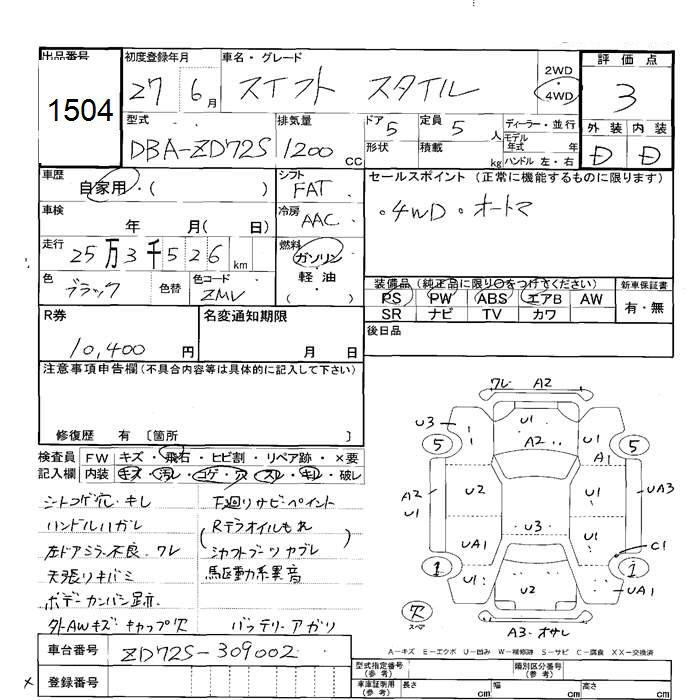 出品番号 1504
初度登録年月 27 6月
車名・グレード スイフト スタイル
2WD・4WD
評価点 3
外装 D 内装 D
型式 DBA-ZD72S
排気量 1200 CC
ドア 5 形状
定員 5 人 積載 kg
ディーラー・並行
モデル年式 年
ハンドル 左・右
車歴 自家用・( )
シフト FAT
セールスポイント (正常に機能するものに限ります)
・4WD・オートマ
車検 年 月( 日)
冷房 AAC
走行 25万3千526km
燃料 ガソリン・軽油・( )
色 ブラック 色替 色コード ZMV
装備品 (純正品に限り○をつけてください)
PS PW ABS エアB AW
SR ナビ TV カワ
新車保証書 有・無
R券 10,400円
名変通知期限 月 日
後日品
注意事項申告欄(不具合内容等は具体的に記入して下さい)
修復歴 有 〔箇所 〕
検査員記入欄
FW キズ・飛石・ヒビ割・リペア跡・×要
内装 キズ・汚レ・コゲ・穴・スレ・キレ・破レ
シートコゲ穴・キレ
ハンドルハガレ
左ドアミラー不良・ワレ
天張りキバミ
ボデーカンバン跡
外AWキズ キャップ欠
下廻りサビ・ペイント
(Rデフオイルもれ
シャフトブーツヤブレ)
駆動系異音
バッテリーアガリ
ワレ A2
U3 U1
5 A2 5
A1
A2 U1 U2 U1 UA3
U3
UA1 U1 C1
1 1
U1 U2 U1 UA1
欠 スペア
A3・オサレ
A－キズ E－エクボ U－凹み W－補修跡 S－サビ C－腐食 XX－交換済
車台番号 ZD72S-309002
登録番号
型式指定番号(参考)
類別区分番号(参考)
車庫証明用(参考) 長さ cm 幅 cm 高さ cm